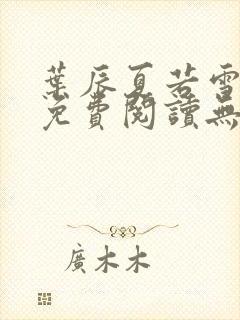 葉辰夏若雪
免費閱讀無
廣木木